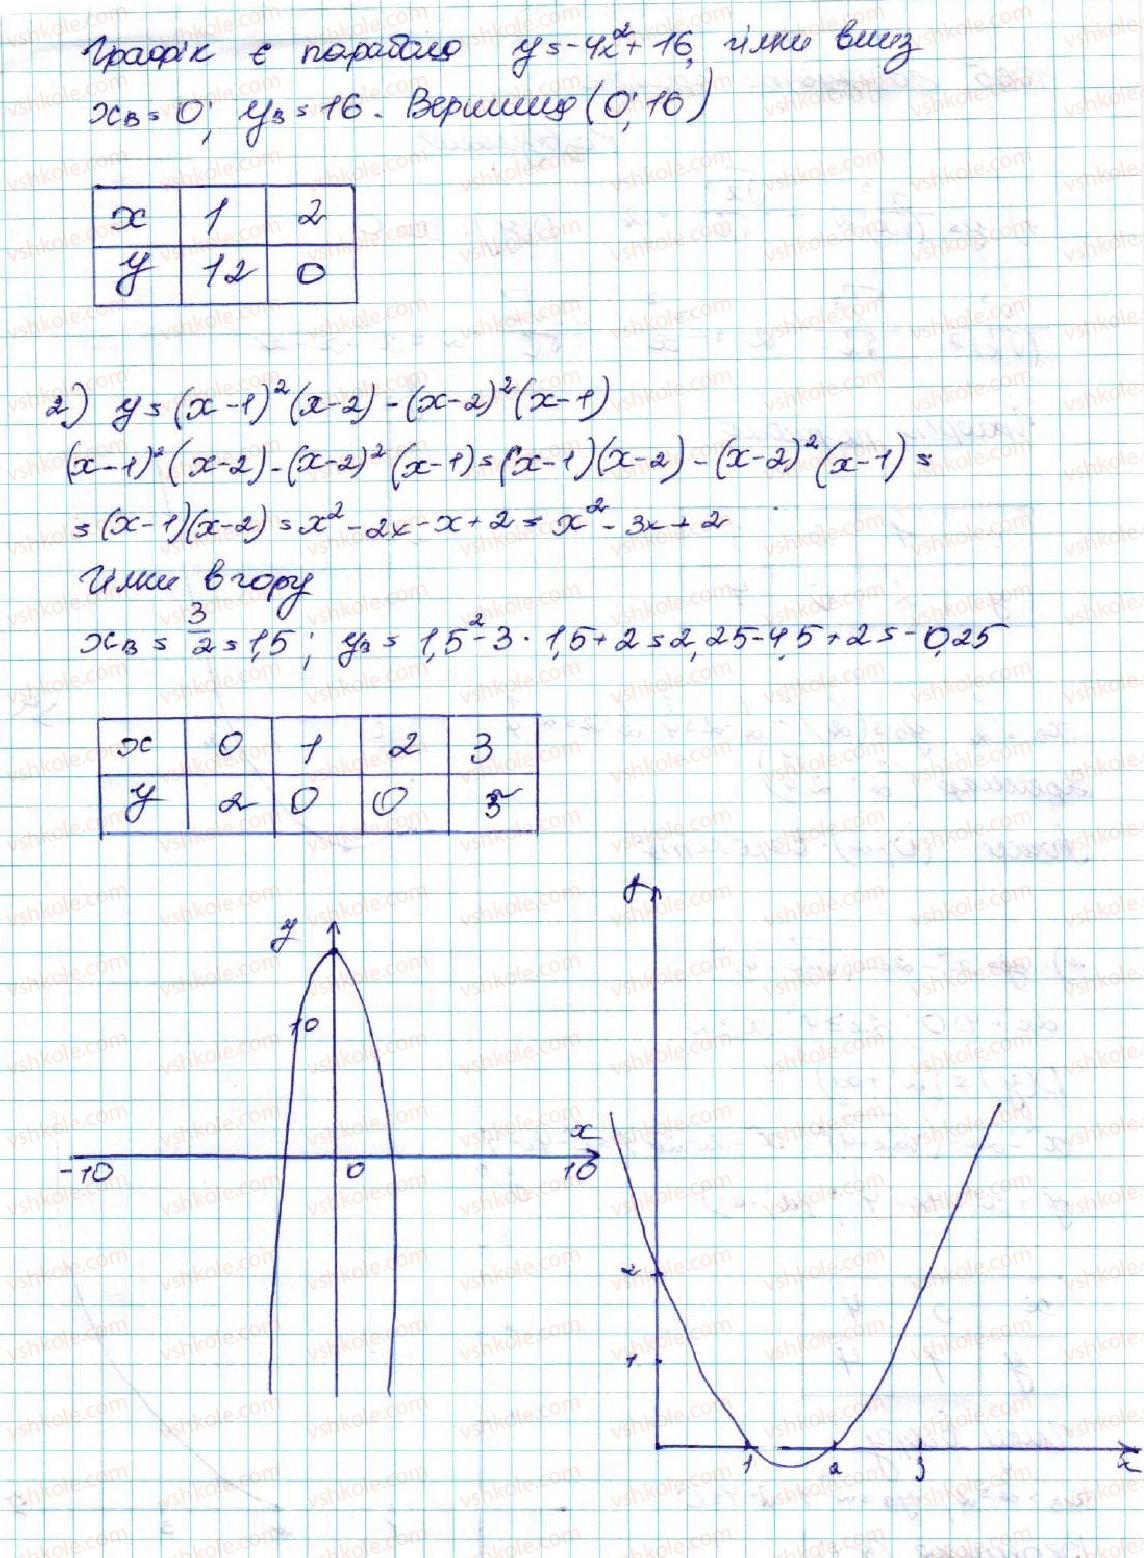 Графік є парабола y = -4x² + 16, гілки вниз
xв = 0; yв = 16. Вершина (0; 16)
x 1 2
y 12 0
2) y = (x-1)²(x-2) - (x-2)²(x-1)
(x-1)²(x-2) - (x-2)²(x-1) = (x-1)(x-2) - (x-2)²(x-1) =
= (x-1)(x-2) = x² - 2x - x + 2 = x² - 3x + 2
Гілки вгору
xв = 3/2 = 1,5; yв = 1,5² - 3 · 1,5 + 2 = 2,25 - 4,5 + 2 = -0,25
x 0 1 2 3
y 2 0 0
y
10
x
-10 0 10
y
2
1
1 2 3 x
vshkole.com